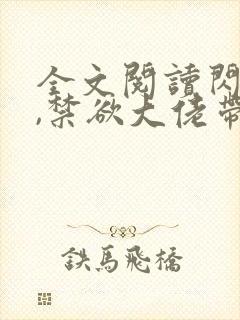 全文閱讀閃
,禁欲大佬帶
鉄馬飛橋